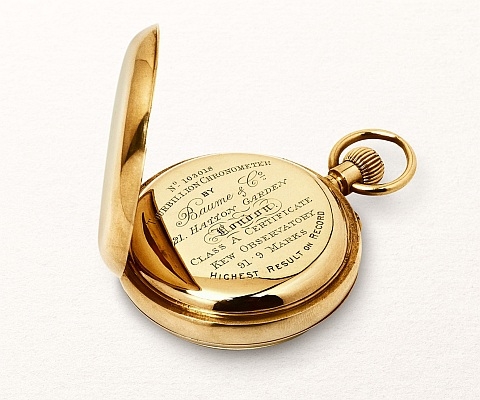 No. 103018
TOURBILLION CHRONOMETER
BY
Baume & Co.
21. HATTON GARDEN
London
CLASS A CERTIFICATE
KEW OBSERVATORY
91.9 MARKS
HIGHEST RESULT ON RECORD